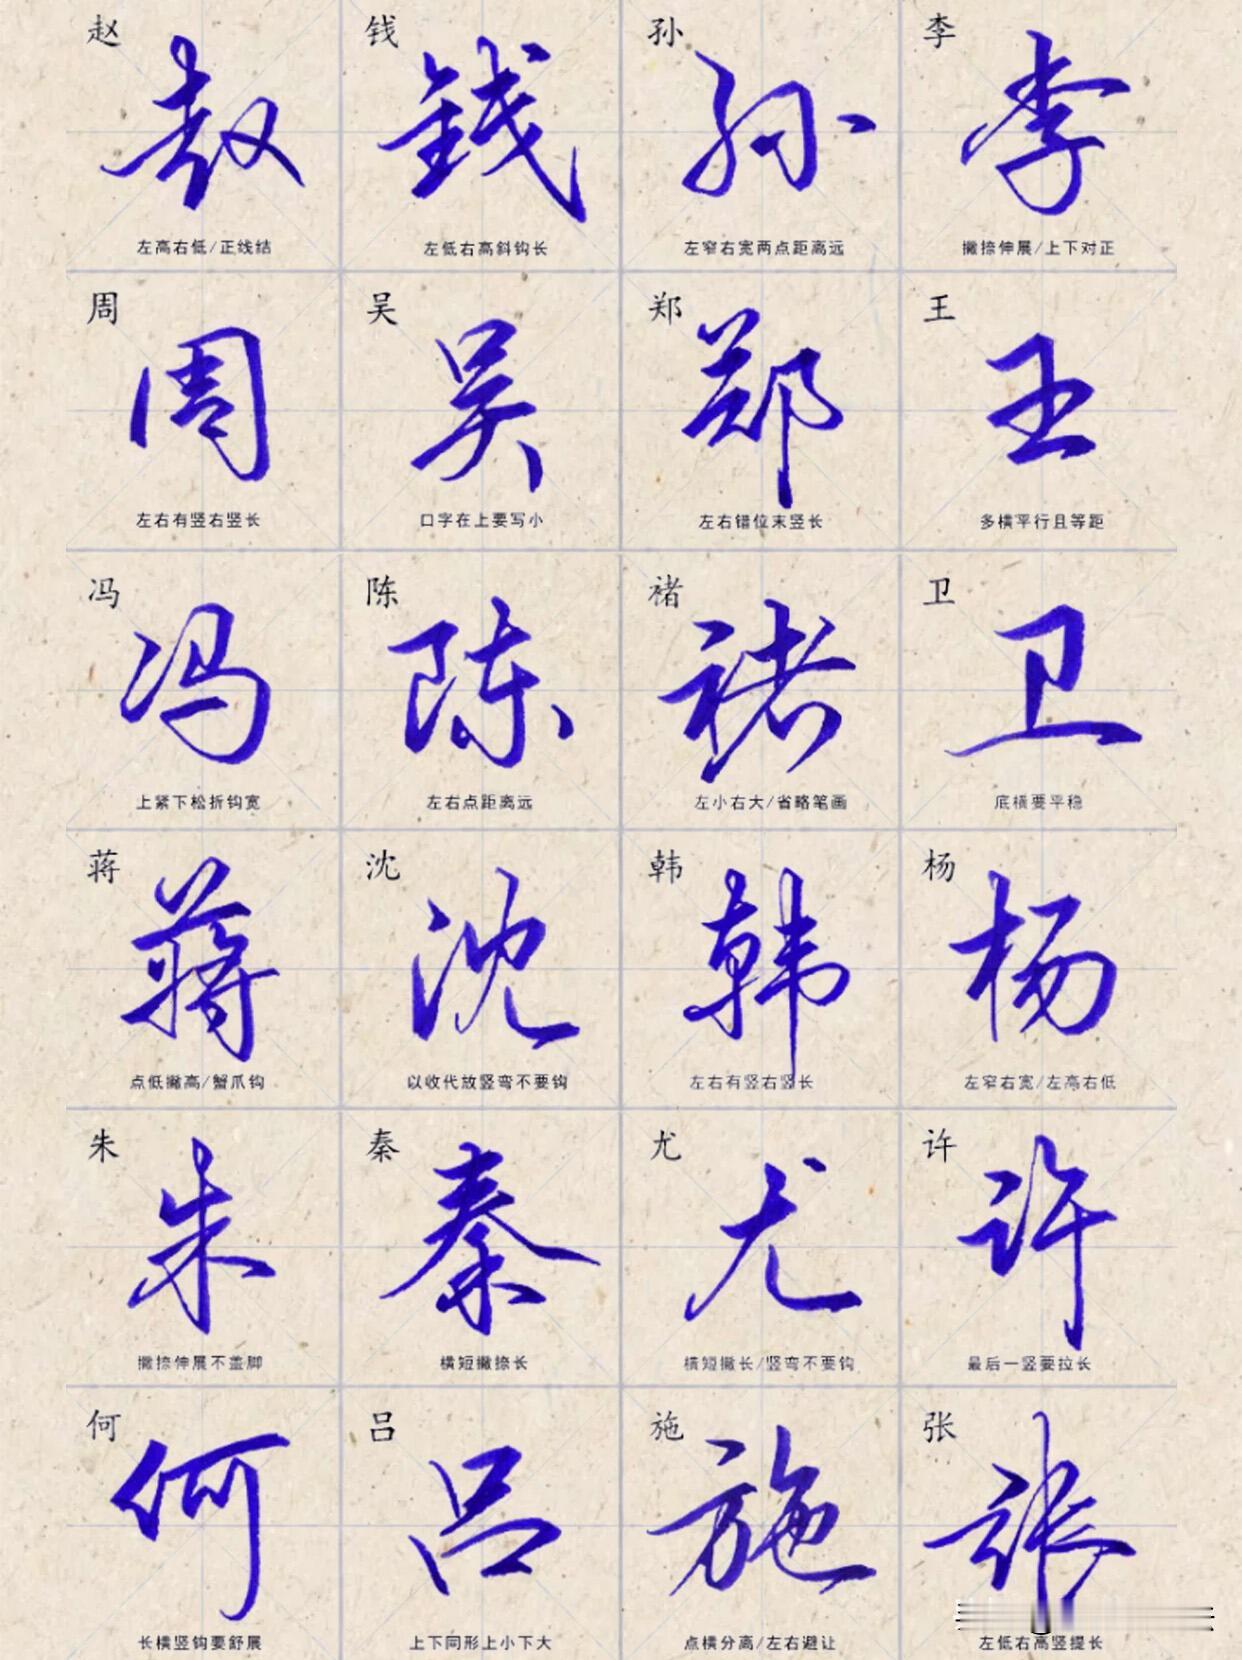 赵 钱 孙 李
赵 錢 孙 李
左高右低/正线结 左低右高斜钩长 左窄右宽两点距离远 撇捺伸展/上下对正
周 吴 郑 王
周 吴 郑 王
左右有竖右竖长 口字在上要写小 左右错位末竖长 多横平行且等距
冯 陈 褚 卫
冯 陈 褚 卫
上紧下松折钩宽 左右点距离远 左小右大/省略笔画 底横要平稳
蒋 沈 韩 杨
蒋 沈 韩 杨
点低撇高/蟹爪钩 以收代放竖弯不要钩 左右有竖右竖长 左窄右宽/左高右低
朱 秦 尤 许
朱 秦 尤 许
撇捺伸展不盖脚 横短撇捺长 横短撇长/竖弯不要钩 最后一竖要拉长
何 吕 施 张
何 吕 施 张
长横竖钩要舒展 上下同形上小下大 点横分离/左右避让 左低右高竖提长